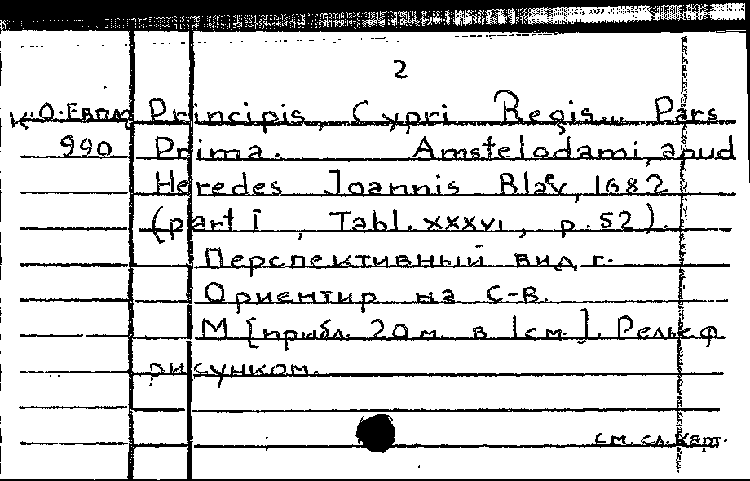 2
К О-Европ Principis, Cypri Regis... Pars
990 Prima. Amstelodami, apud
Heredes Joannis Blaev, 1682
(part I, Tabl. XXXVI, p. 52).
Перспективный вид г.
Ориентир на С-В.
М [прибл. 20 м в 1 см.]. Рельеф
рисунком.
см. сл. карт.